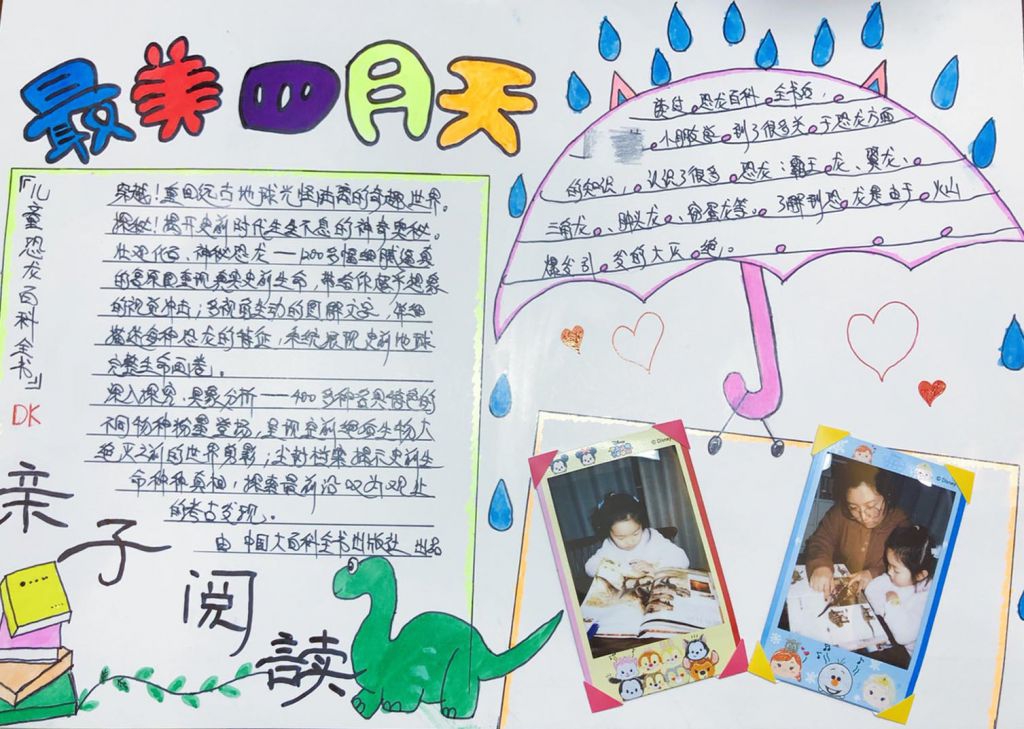 最美四月天
『儿童恐龙百科全书』
DK
穿越!重回远古地球光怪陆离的奇趣世界。
探秘!揭开史前时代生生不息的神奇奥秘。
壮观化石、神秘恐龙——1200多幅细腻逼真
的复原图重现真实史前生命,带给你超乎想象
的视觉冲击;多视角生动的图解文字,详细
描述每种恐龙的特征,系统展现史前地球
完整生命画卷。
深入探究·具象分析——400多种各具特色的
不同物种粉墨登场,呈现史前绝迹生物大
绝灭之前的世界剪影;尘封档案揭示史前生
命种种真相,探索最前沿
的考古发现。
由 中国大百科全书出版社 出品
亲子阅读
读过 恐龙百科 全书后,
小朋友学 到了很多关 于恐龙方面
的知识, 认识了很多 恐龙:霸王 龙、翼龙、
三角龙、 肿头龙、 窃蛋龙等。 了解到恐 龙是由于 火山
爆发引 发的大灭 绝。
© Disney
Disney
© Disney